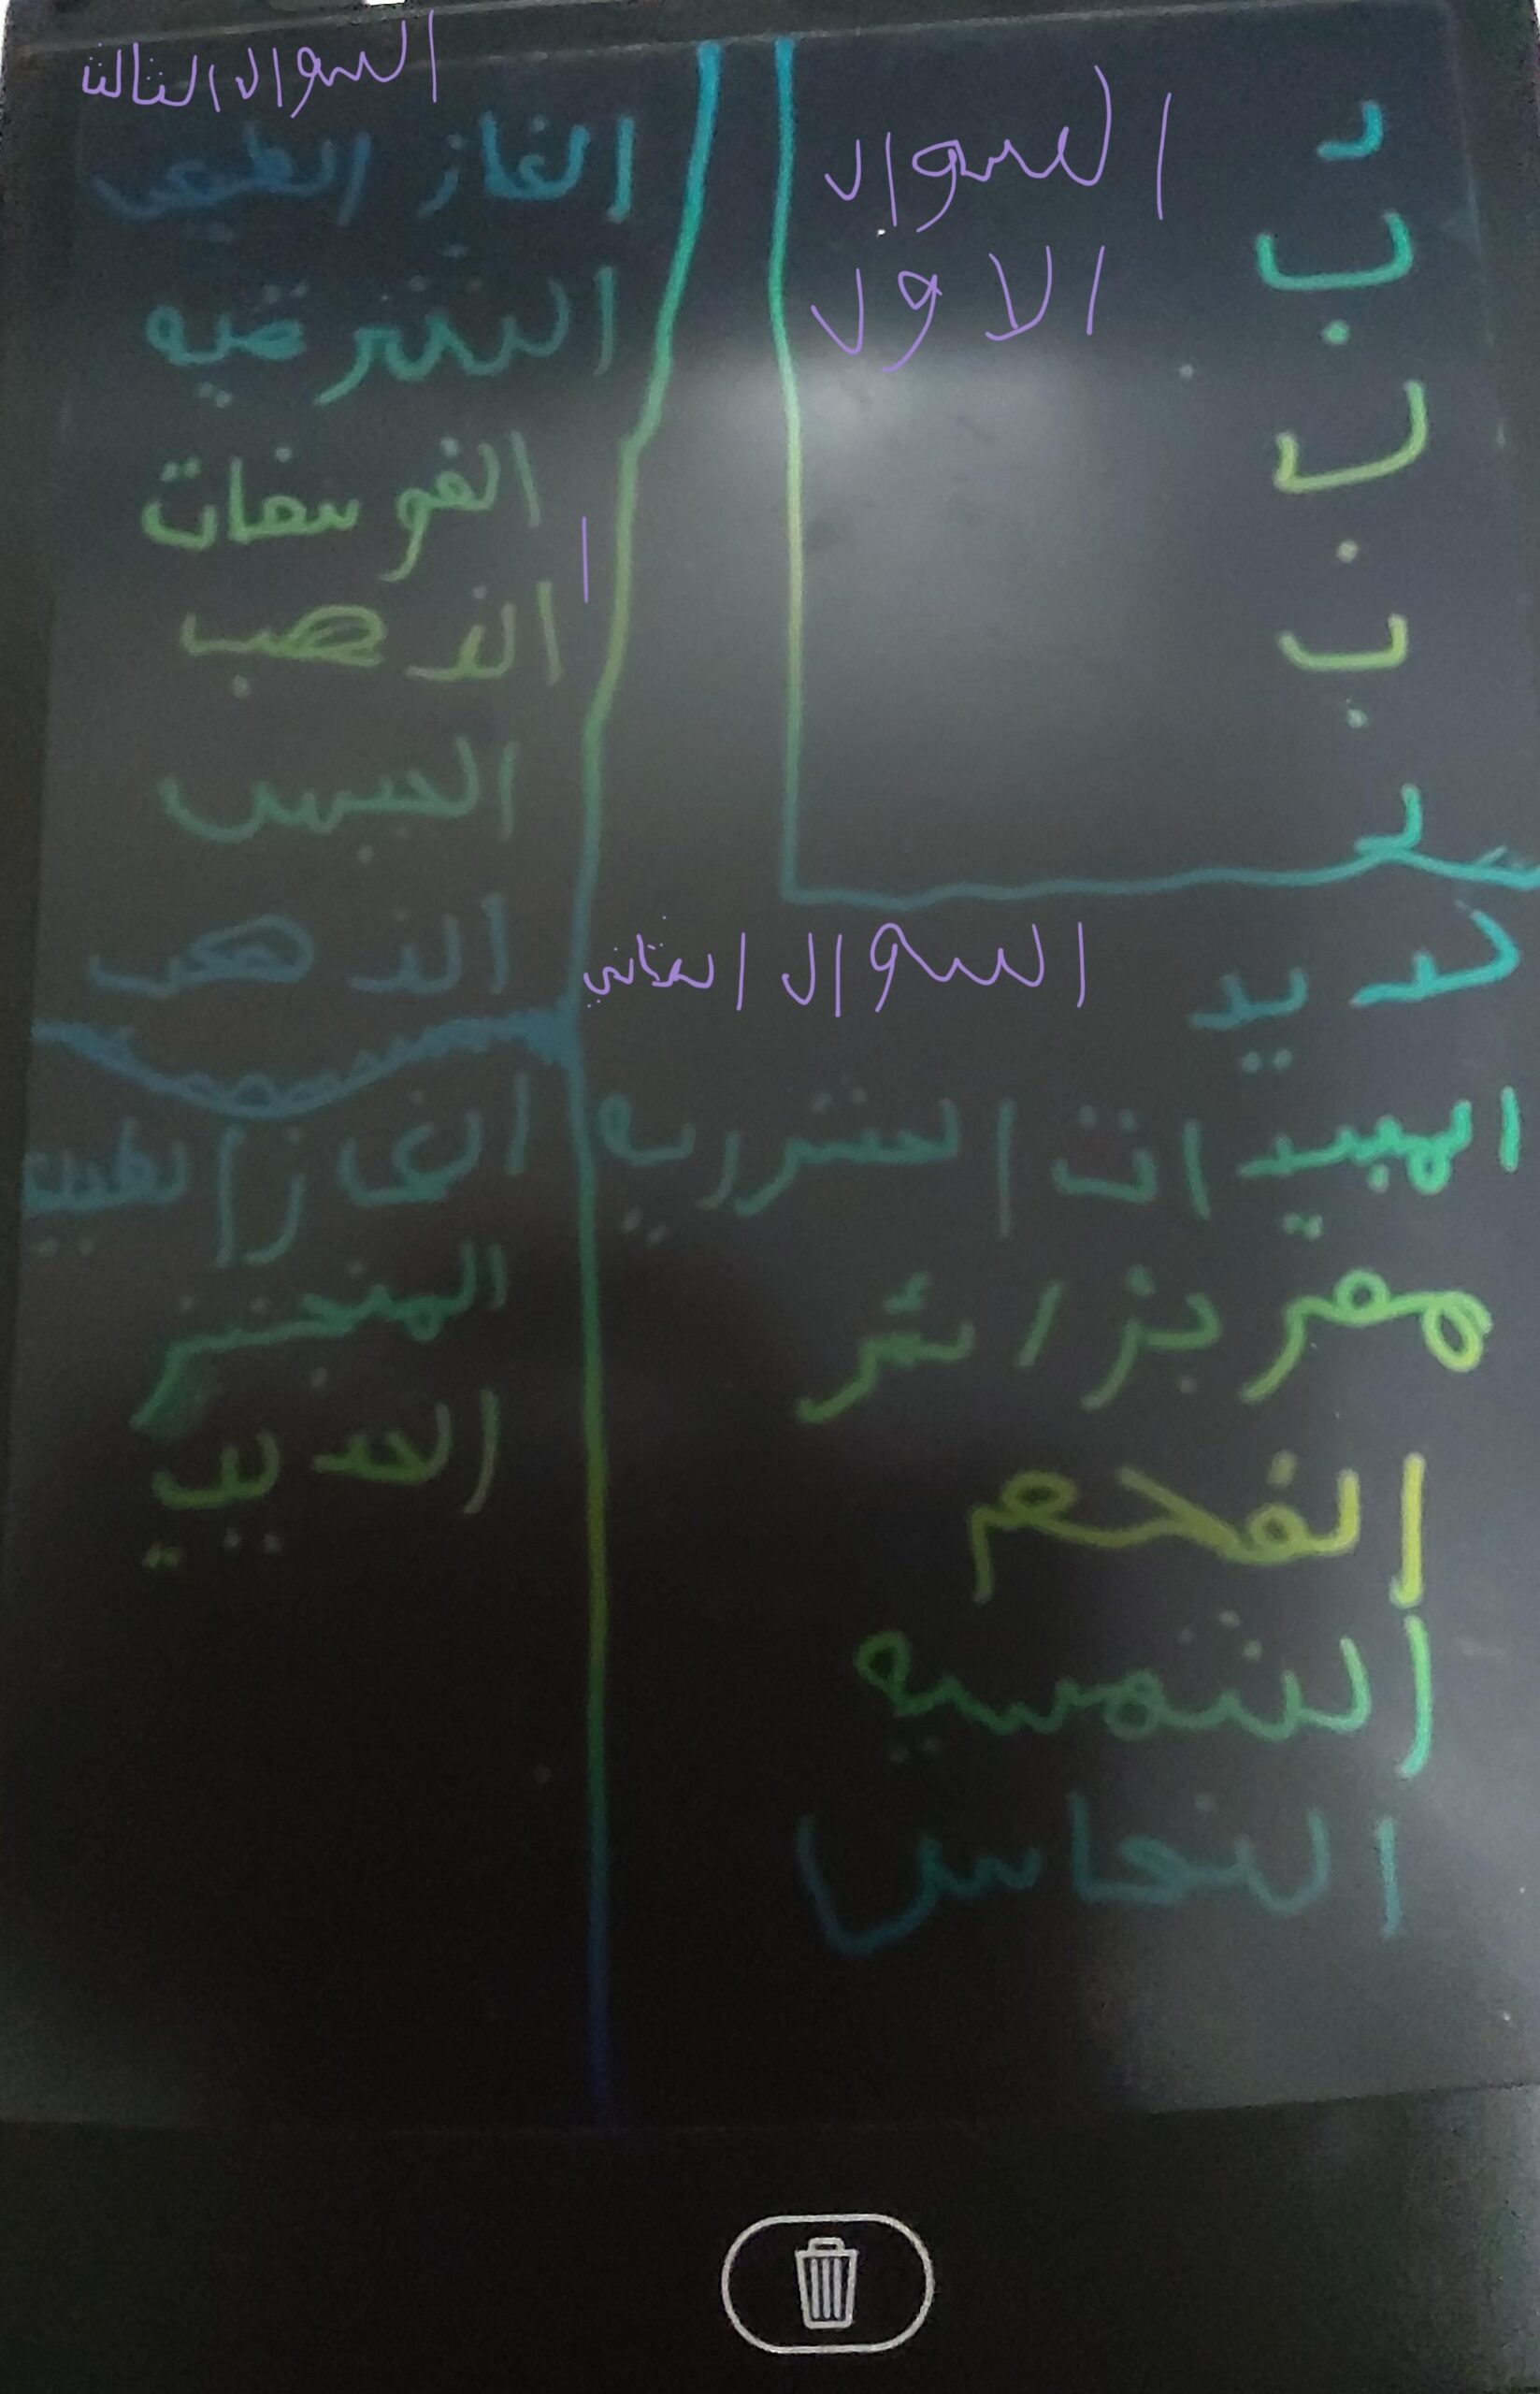 السوال
الاول
د
ب
د
ب
ب
د
السوال الثاني
حديد
المبيدات الحشرريه
مصر جزائر
الفحم
الشمسيه
النحاس
السوال الثالث
الغاز الطبيعي
الشرقيه
الفوسفات
الذهب
الجبس
الذهب
الغاز الطبيـ
المنجنيز
الحديد